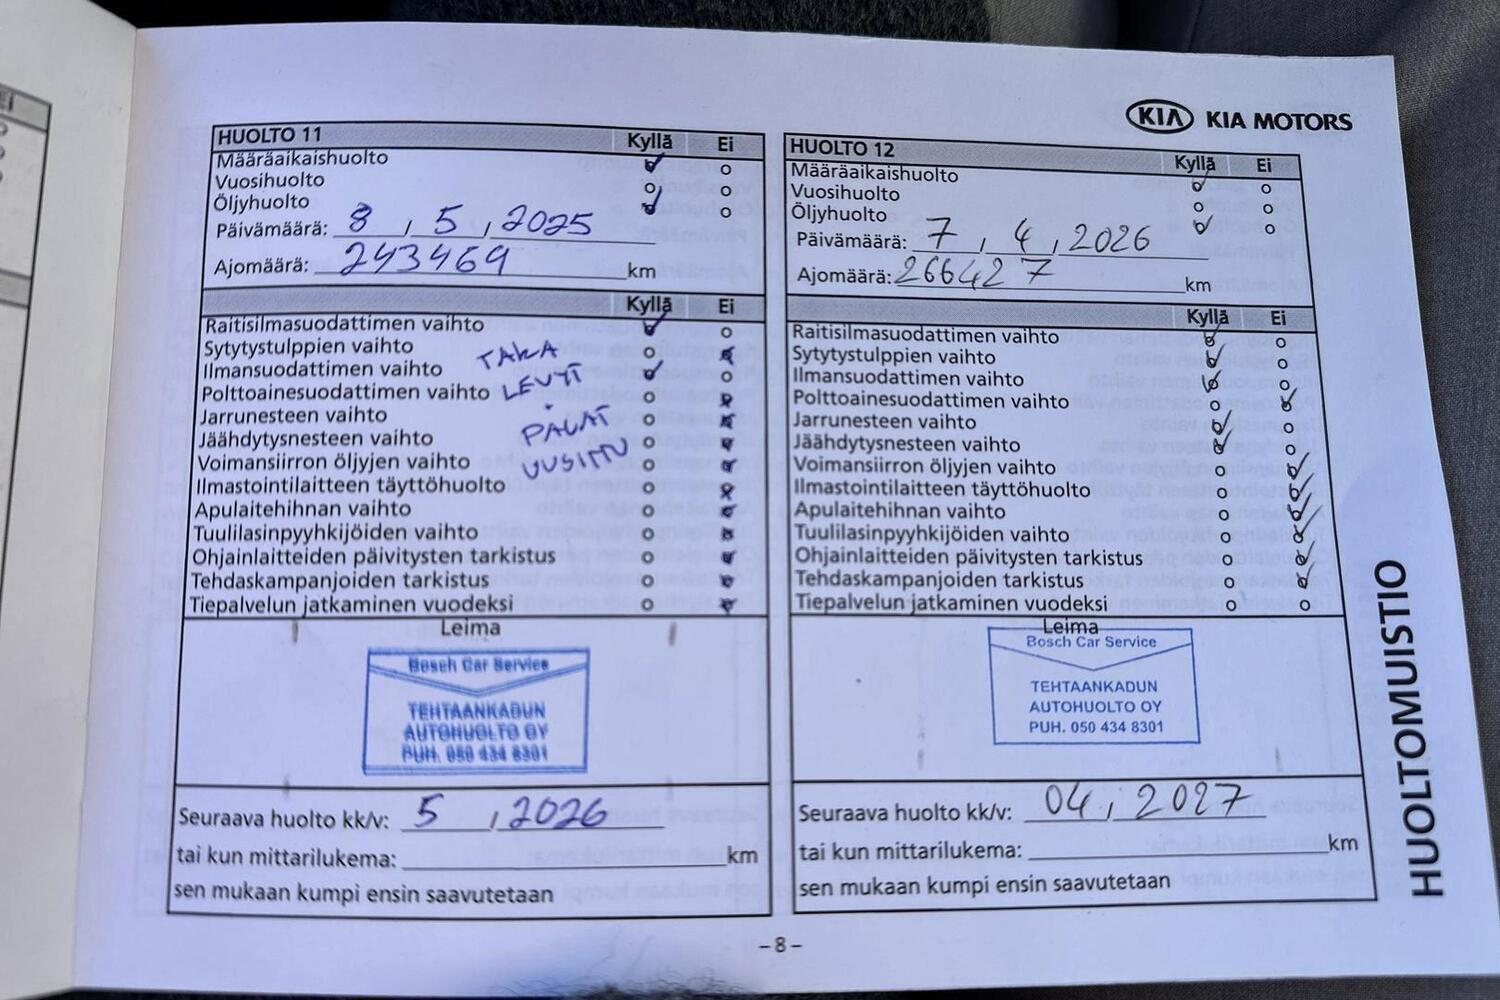 EI
KIA KIA MOTORS
HUOLTO 11 Kyllä Ei
Määräaikaishuolto
Vuosihuolto
Öljyhuolto
Päivämäärä: 8, 5, 2025
Ajomäärä: 243469 km
Kyllä Ei
Raitisilmasuodattimen vaihto
Sytytystulppien vaihto
Ilmansuodattimen vaihto
Polttoainesuodattimen vaihto
Jarrunesteen vaihto
Jäähdytysnesteen vaihto
Voimansiirron öljyjen vaihto
Ilmastointilaitteen täyttöhuolto
Apulaitehihnan vaihto
Tuulilasinpyyhkijöiden vaihto
Ohjainlaitteiden päivitysten tarkistus
Tehdaskampanjoiden tarkistus
Tiepalvelun jatkaminen vuodeksi
TAKA
LEVYT
PALAT
UUSITTU
Leima
Bosch Car Service
TEHTAANKADUN
AUTOHUOLTO OY
PUH. 050 434 8301
Seuraava huolto kk/v: 5, 2026
tai kun mittarilukema: km
sen mukaan kumpi ensin saavutetaan
HUOLTO 12 Kyllä Ei
Määräaikaishuolto
Vuosihuolto
Öljyhuolto
Päivämäärä: 7, 4, 2026
Ajomäärä: 266427 km
Kyllä Ei
Raitisilmasuodattimen vaihto
Sytytystulppien vaihto
Ilmansuodattimen vaihto
Polttoainesuodattimen vaihto
Jarrunesteen vaihto
Jäähdytysnesteen vaihto
Voimansiirron öljyjen vaihto
Ilmastointilaitteen täyttöhuolto
Apulaitehihnan vaihto
Tuulilasinpyyhkijöiden vaihto
Ohjainlaitteiden päivitysten tarkistus
Tehdaskampanjoiden tarkistus
Tiepalvelun jatkaminen vuodeksi
Leima
Bosch Car Service
TEHTAANKADUN
AUTOHUOLTO OY
PUH. 050 434 8301
Seuraava huolto kk/v: 04, 2027
tai kun mittarilukema: km
sen mukaan kumpi ensin saavutetaan
HUOLTOMUISTIO
– 8 –